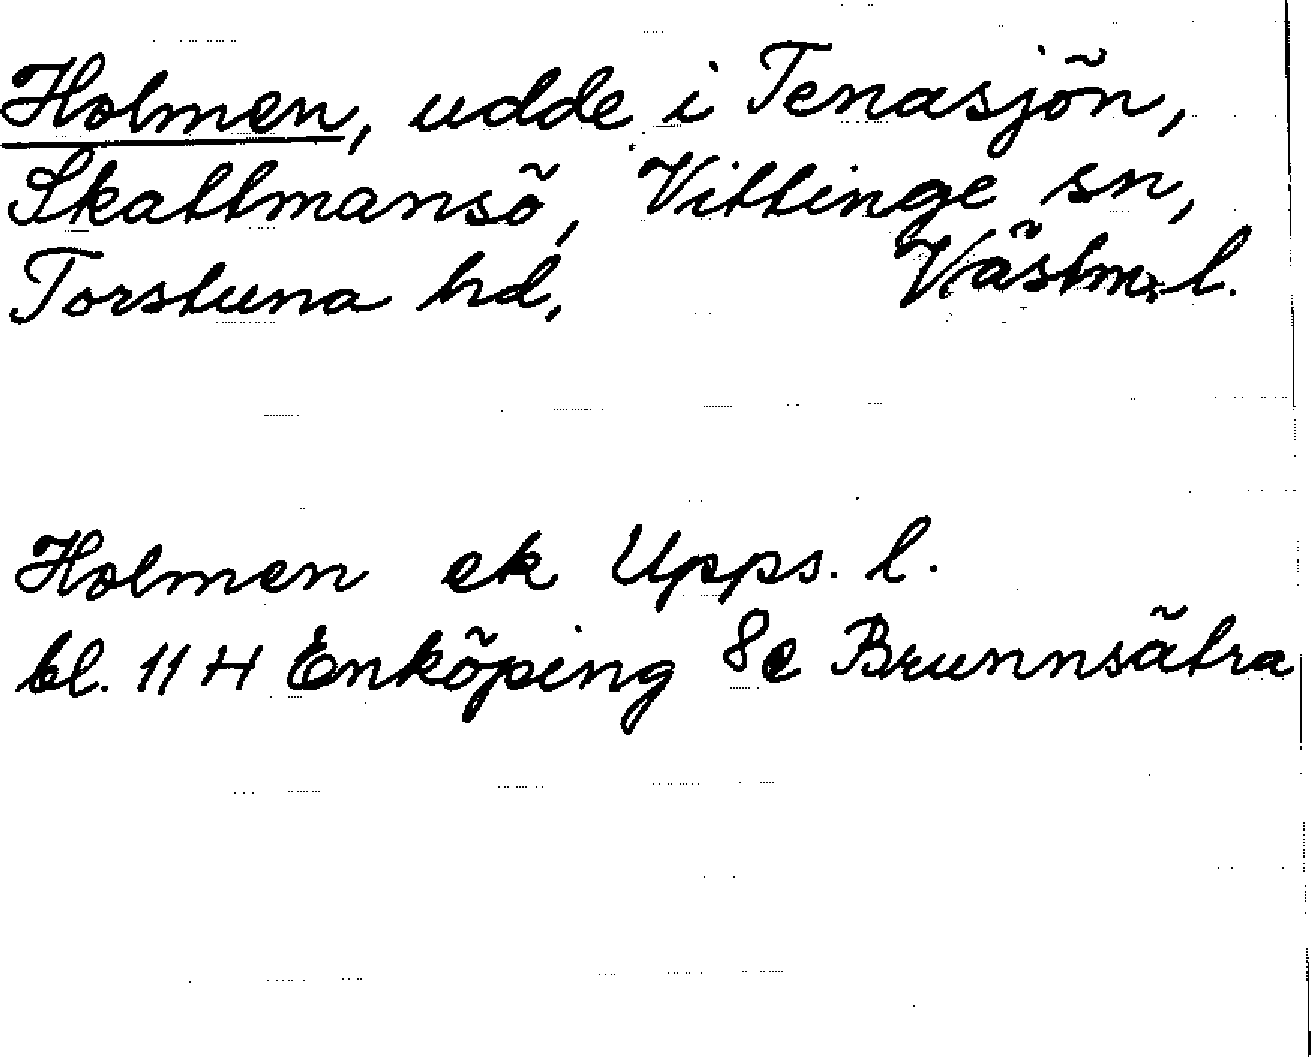 Holmen, udde i Tenasjön,
Skattmansö, Vittinge sn,
Torstuna hd, Västm. l.
Holmen ek Upps. l.
bl. 11 H Enköping 8e Brunnsätra